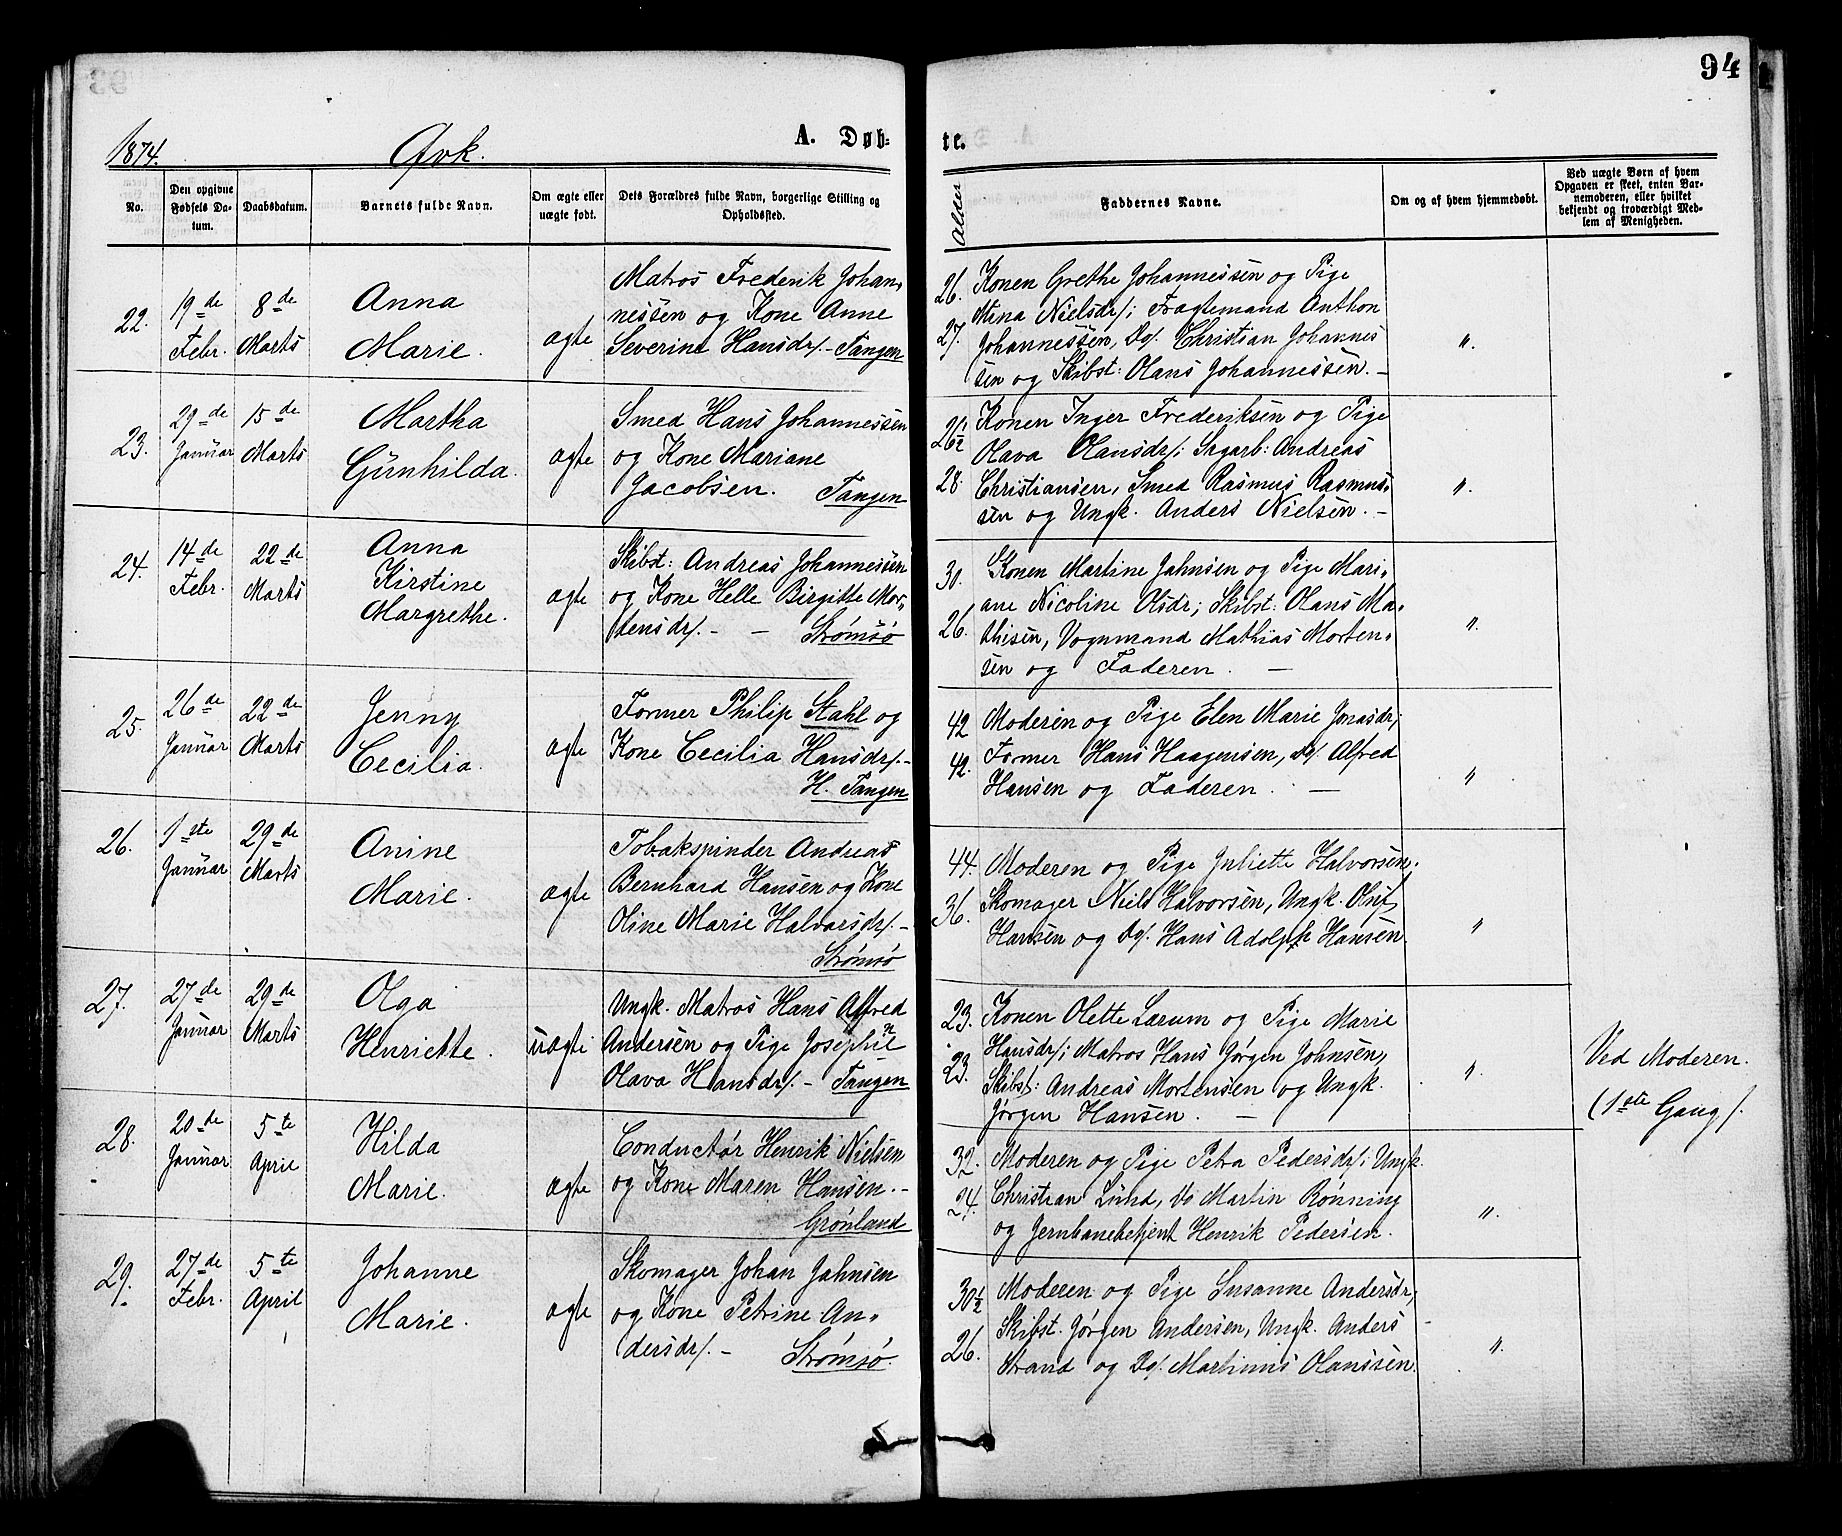 94
1874.
Qvk.
A. Døb-
te.
No.
Den opgivne
Fødsels Da-
tum.
Daabsdatum.
Barnets fulde Navn.
Om ægte eller
uægte født.
Dets Forældres fulde Navn, borgerlige Stilling og
Opholdssted.
Alder
Faddernes Navne.
Om og af hvem hjemmedøbt.
Ved uægte Børn af hvem
Opgaven er skeet, enten Bar-
nemoderen, eller hvilket
bekjendt og troværdigt Med-
lem af Menigheden.
22.
19de
Febr.
8de
Marts
Anna
Marie.
ægte
Matros Frederik Johan-
nessen og Kone Anne
Severine Hansdr/.- Tangen
26.
27.
Konen Grethe Johannessen og Pige
Mina Nielsdr/; Fragtemand Anthon
Johannessen, Do/. Christian Johannes
sen og Skibst: Olans Johannessen. -
"
23.
29de
Januar
15de
Marts
Martha
Gunhilda.
ægte
Smed Hans Johannessen
og Kone Mariane
Jacobsen. Tangen
26½
28.
Konen Inger Frederiksen og Pige
Olava Olansdr/; Sagarb: Andreas
Christiansen, Smed Rasmus Rasmus-
sen og Ungk. Anders Nielsen. -
"
24.
14de
Febr.
22de
Marts
Anna
Kirstine
Margrethe.
ægte
Skibst: Andreas Johannessen
og Kone Helle Birgitte Mor-
tensdr/. - - Strømsø
30.
26.
Konen Martine Jahnsen og Pige Mari-
ane Nicoline Olsdr; Skibst: Olans Ma-
thisen, Vognmand Mathias Morten-
sen og Faderen. -
"
25.
26de
Januar
22de
Marts
Jenny
Cecilia.
ægte
Former Philip Stahl og
Kone Cecilia Hansdr/. -
H. Tangen
42
42.
Moderen og Pige Elen Marie Jonasdr;
Former Hans Haagensen, Do/. Alfred
Hansen og Faderen. -
"
26.
1ste
Januar
29de
Marts
Anine
Marie.
ægte
Tobakspinder Andreas
Bernhard Hansen og Kone
Oline Marie Halvorsdr/. -
Strømsø
44.
36.
Moderen og Pige Juliette Halvorsen;
Skomager Niels Halvorsen, Ungk. Oluf
Hansen og Do/. Hans Adolph Hansen
"
27.
27de
Januar
29de
Marts
Olga
Henriette.
uægte
Ungk. Matros Hans Alfred
Andersen og Pige Josephine
Olava Hansdr/. - Tangen
23.
23.
Konen Olette Larum og Pige Marie
Hansdr/; Matros Hans Jørgen Johnsen,
Skibst: Andreas Mortensen og Ungk.
Jørgen Hansen. -
"
Ved Moderen.
(1ste Gang/.
28.
20de
Januar
5te
April
Hilda
Marie.
ægte
Conductør Henrik Nielsen
og Kone Maren Hansen. -
Grønland
32.
24.
Moderen og Pige Petra Pedersdr/; Ungk.
Christian Lund, Do Martin Rønning
og Jernbanebetjent Henrik Pedersen.
"
29.
27de
Febr.
5te
April
Johanne
Marie.
ægte
Skomager Johan Jahnsen
og Kone Petrine An-
dersdr/. - Strømsø.
30½
26.
Moderen og Pige Susanne Andersdr;
Skibst. Jørgen Andersen, Ungk. Anders
Strand og Do/. Martinus Olanssen.
"